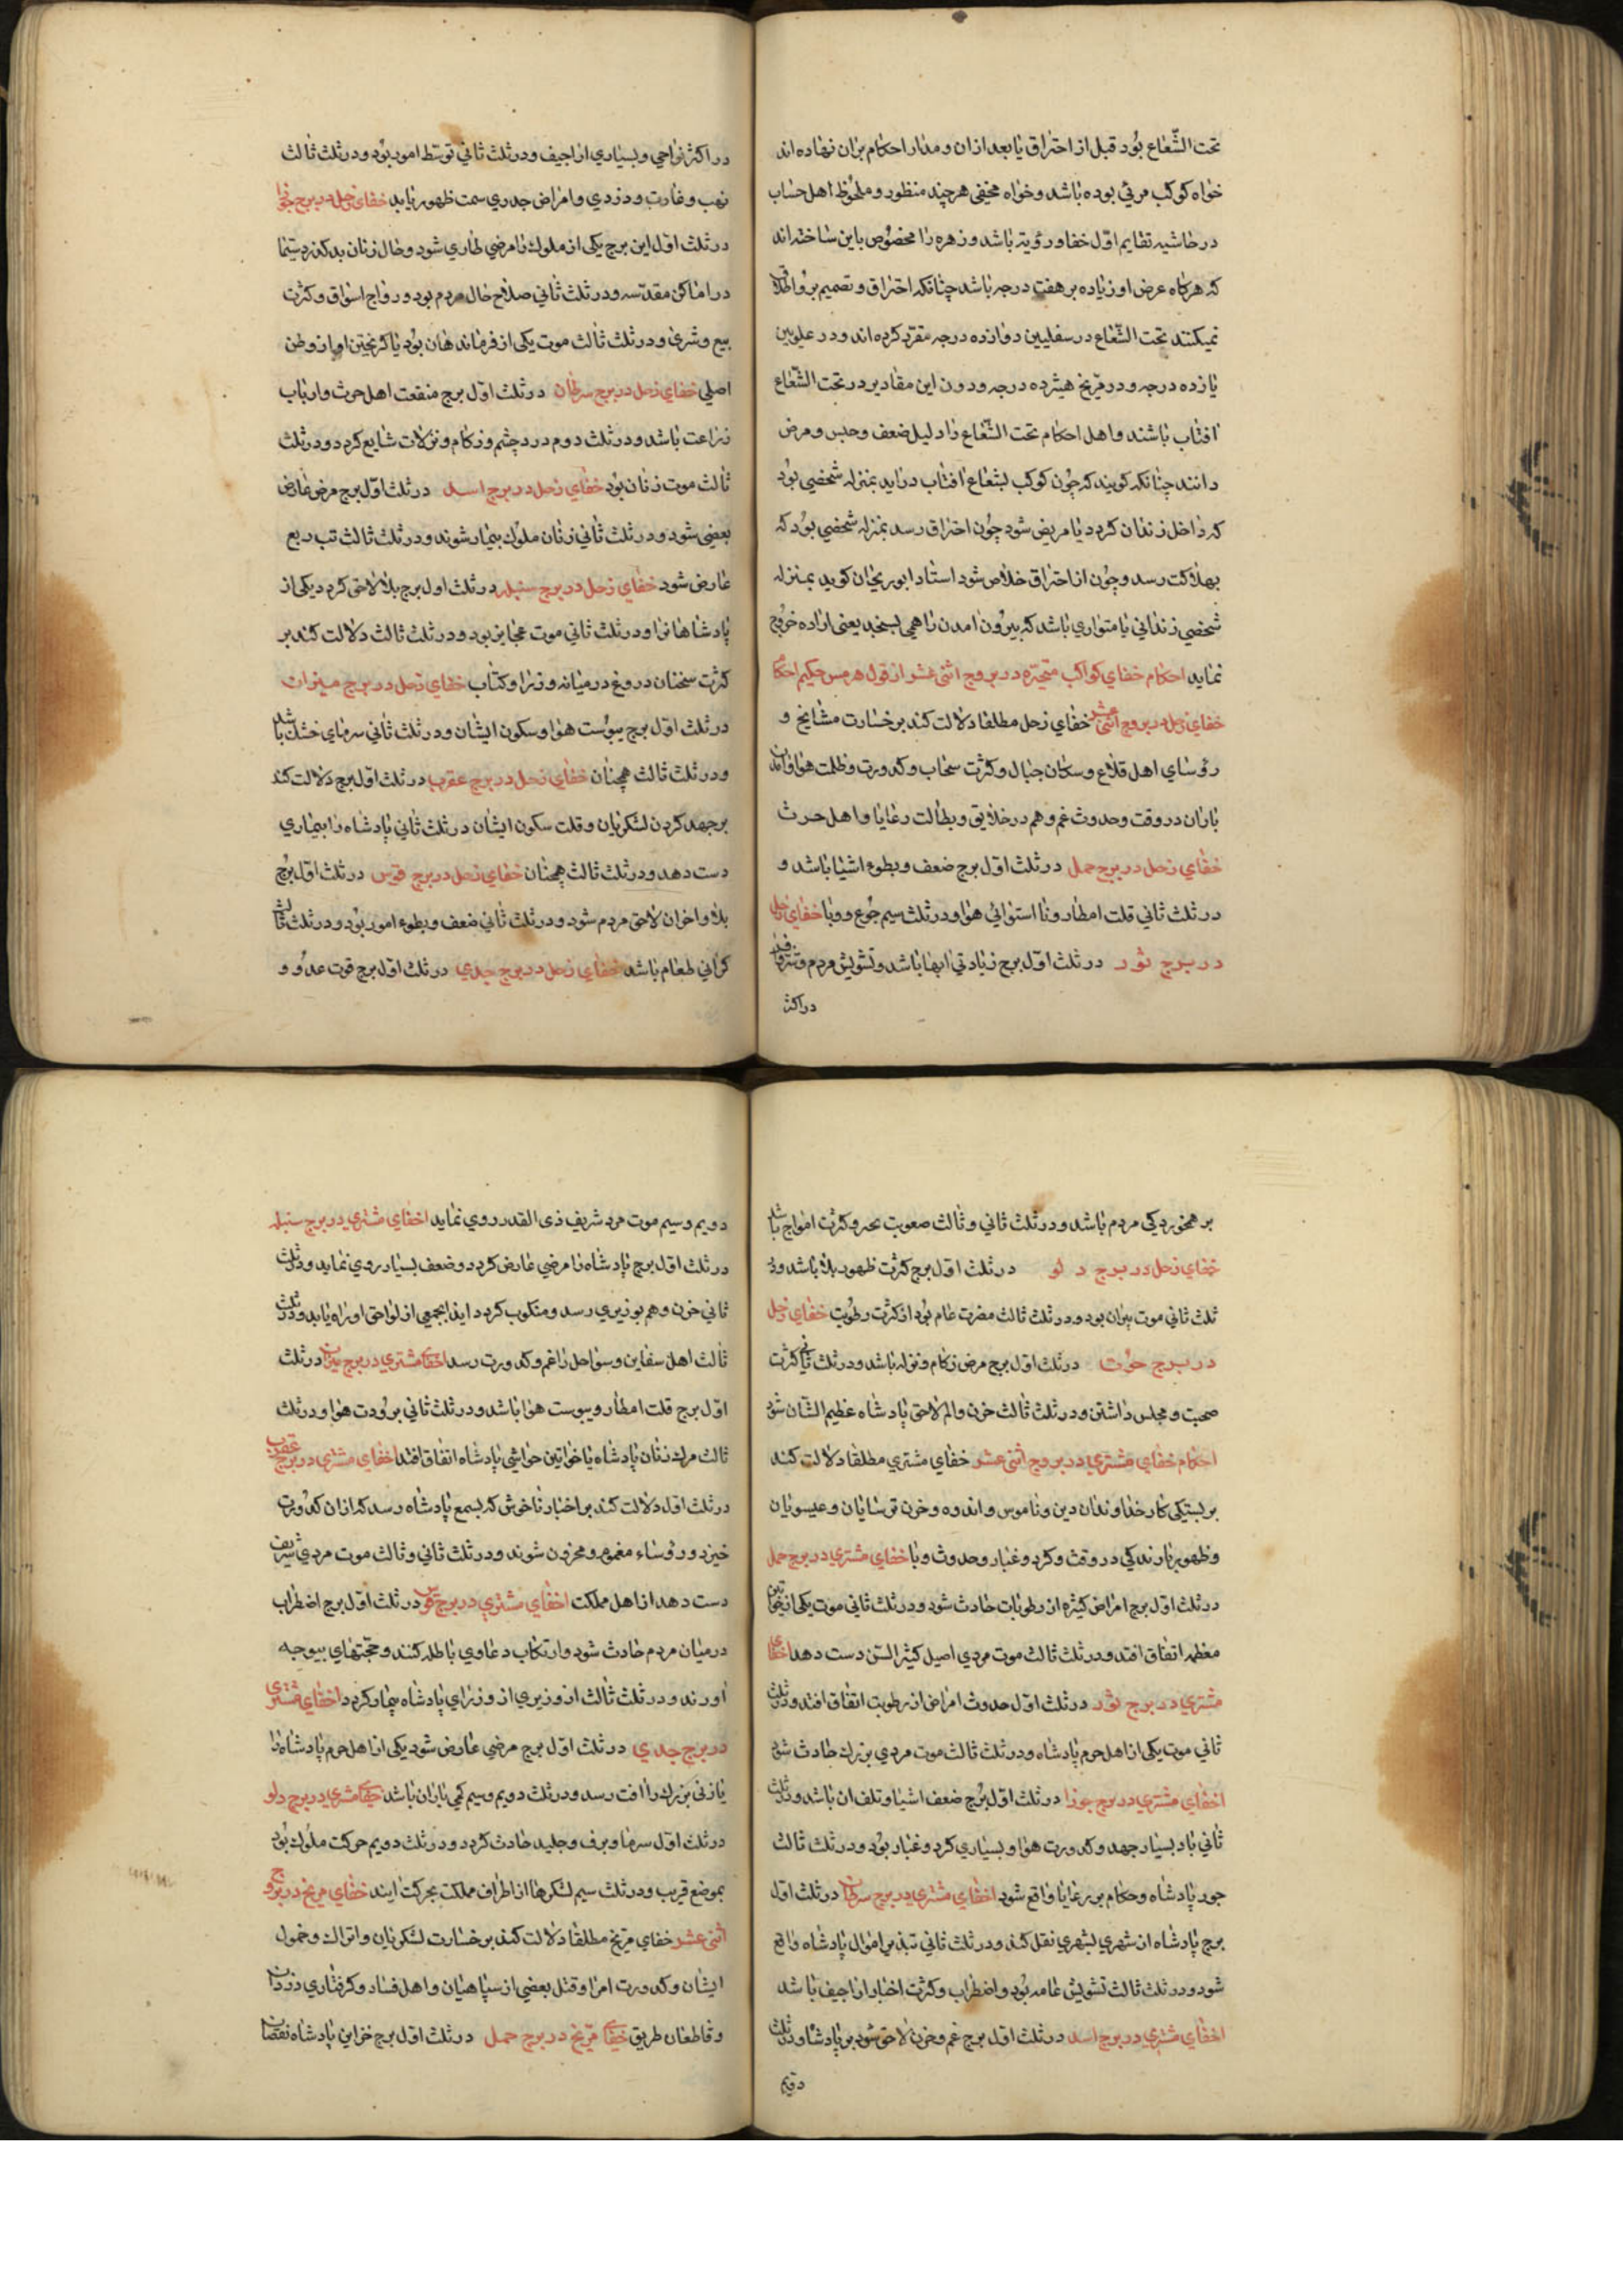 تحت الشّعاع بود قبل از احتراق یا بعد ازان و مدار احکام بران نهاده اند
خواه کوکب مرئی بوده باشد و خواه مخفی هرچند منظور و ملحوظ اهل حساب
در حاشیه تقایم اوّل خفا و رؤیه باشد و زهره را مخصوص باین ساخته اند
که هرکاه عرض او زیاده بر هفت درجه باشد چنانکه احتراق و تصمیم برو اطلاق
نمیکنند تحت الشّعاع در سفلیین دوازده درجه مقرّر کرده اند و در علویین
یازده درجه و در مرّیخ هیژده درجه و دون این مقادیر در تحت الشّعاع
افتاب باشند و اهل احکام تحت الشّعاع را دلیل ضعف و حبس و مرض
دانند چنانکه کویند که چون کوکب بشعاع افتاب دراید بمنزله شخصی بود
که داخل زندان کردد یا مریض شود چون احتراق رسد بمنزله شخصی بود که
بهلاکت رسد و چون از احتراق خلاص شود استاد ابوریحان کوید بمنزله
شخصی زندانی یا متواری باشد که بیرون امدن را همی بسنجد یعنی اراده خروج
نماید احکام خفای کواکب متحیّره در بروج اثنی عشر از قول هرمس حکیم احکام
خفای زحل در بروج اثنی عشر خفای زحل مطلقا دلالت کند بر خسارت مشایخ و
رؤسای اهل قلاع و سکان جبال و کثرت سحاب و کدورت و ظلمت هوا و امدن
باران در وقت و حدوث غم و هم در خلایق و بطالت رعایا و اهل حرث
خفای زحل در برج حمل در ثلث اوّل برج ضعف و بطوء اشیا باشد و
در ثلث ثانی قلت امطار و نا استوائی هوا و در ثلث سیم جوع و وبا خفای زحل
در برج ثور در ثلث اوّل برج زیادتی ابها باشد و تشویش مردم و
در اکثر
در اکثر نواحی و بسیاری اراجیف و در ثلث ثانی توسّط امور بود و در ثلث ثالث
نهب و غارت و دزدی و امراض جدری سمت ظهور یابد خفای زحل در برج جوزا
در ثلث اوّل این برج یکی از ملوک را مرضی طاری شود و حال زنان بد کذرد سیّما
در اماکن مقدّسه و در ثلث ثانی صلاح حال مردم بود و رواج اسواق و کثرت
بیع و شری و در ثلث ثالث موت یکی از فرماندهان بود یا کریختن او از وطن
اصلی خفای زحل در برج سرطان در ثلث اوّل برج منفعت اهل حرث و ارباب
زراعت باشد و در ثلث دوم درد چشم و زکام و نزلات شایع کردد و در ثلث
ثالث موت زنان بود خفای زحل در برج اسد در ثلث اوّل برج مرض عارض
بعضی شود و در ثلث ثانی زنان ملوک بیمار شوند و در ثلث ثالث تب ربع
عارض شود خفای زحل در برج سنبله در ثلث اول برج بلا لاحق کردد یکی از
پادشاهانرا و در ثلث ثانی موت عجایز بود و در ثلث ثالث دلالت کند بر
کثرت سخنان دروغ در میانه وزرا و کتاب خفای زحل در برج میزان
در ثلث اوّل برج یبوست هوا و سکون ایشان و در ثلث ثانی سرمای خشک باشد
و در ثلث ثالث همچنان خفای زحل در برج عقرب در ثلث اوّل برج دلالت کند
بر جهد کردن لشکریان و قلت سکون ایشان در ثلث ثانی پادشاه را بیماری
دست دهد و در ثلث ثالث همچنان خفای زحل در برج قوس در ثلث اوّل برج
بلا و احزان لاحق مردم شود و در ثلث ثانی ضعف و بطوء امور بود و در ثلث ثالث
کرانی طعام باشد خفای زحل در برج جدی در ثلث اوّل برج قوت عدو و
بر همخوردکی مردم باشد و در ثلث ثانی و ثالث صعوبت بحر و کثرت امواج باشد
خفای زحل در برج دلو در ثلث اوّل برج کثرت ظهور بلا باشد و در
ثلث ثانی موت پیران بود و در ثلث ثالث مضرت عام بود از کثرت رطوبت خفای زحل
در برج حوت در ثلث اوّل برج مرض زکام و نزله باشد و در ثلث ثانی کثرت
صحبت و مجلس داشتن و در ثلث ثالث حزن و الم لاحق پادشاه عظیم الشّان شود
احکام خفای مشتری در بروج اثنی عشر خفای مشتری مطلقا دلالت کند
بر بستیکی کار خداوندان دین و ناموس و اندوه و حزن ترسایان و عیسویان
و ظهور بارندکی در وقت و کرد و غبار و حدوث وبا خفای مشتری در برج حمل
در ثلث اوّل برج امراض کثیره از رطوبات حادث شود و در ثلث ثانی موت یکی از خواتین
معظمه اتفاق افتد و در ثلث ثالث موت مردی اصیل کثیر السّن دست دهد اخفای
مشتری در برج ثور در ثلث اوّل حدوث امراض از رطوبت اتفاق افتد و در ثلث
ثانی موت یکی از اهل حرم پادشاه و در ثلث ثالث موت مردی بزرک حادث شود
اخفای مشتری در برج جوزا در ثلث اوّل برج ضعف اشیا و تلف ان باشد و در ثلث
ثانی باد بسیار جهد و کدورت هوا و بسیاری کرد و غبار بود و در ثلث ثالث
جور پادشاه و حکام بر رعایا واقع شود اخفای مشتری در برج سرطان در ثلث اوّل
برج پادشاه از شهری بشهری نقل کند و در ثلث ثانی تبذیر اموال پادشاه واقع
شود و در ثلث ثالث تشویش عامه بود و اضطراب و کثرت اخبار اراجیف باشد
اخفای مشتری در برج اسد در ثلث اوّل برج غم و حزن لاحق شود بر پادشاه و در ثلث
دویم
دویم و سیم موت مرد شریف ذی القدر روی نماید اخفای مشتری در برج سنبله
در ثلث اوّل برج پادشاه را مرضی عارض کردد و ضعف بسیار روی نماید و در ثلث
ثانی حزن و هم بوزیری رسد و منکوب کردد ایذا بجمعی از لواحق او راه یابد و در ثلث
ثالث اهل سفاین و سواحل را غم و کدورت رسد اخفای مشتری در برج میزان در ثلث
اوّل برج قلت امطار و یبوست هوا باشد و در ثلث ثانی برودت هوا و در ثلث
ثالث مرک زنان پادشاه یا خواتین حواشی پادشاه اتفاق افتد اخفای مشتری در برج عقرب
در ثلث اوّل دلالت کند بر اخبار ناخوش که بسمع پادشاه رسد که ازان کدورت
خیزد و رؤساء مغموم و محزون شوند و در ثلث ثانی و ثالث موت مردی شریف
دست دهد از اهل مملکت اخفای مشتری در برج قوس در ثلث اوّل برج اضطراب
در میان مردم حادث شود و ارتکاب دعاوی باطله کنند و حجّتهای بیوجه
اورند و در ثلث ثالث از وزیری از وزرای پادشاه بیمار کردد اخفای مشتری
در برج جدی در ثلث اوّل برج مرضی عارض شود یکی از اهل حرم پادشاه را
یا زنی بزرک را افت رسد و در ثلث دویم و سیم کمی باران باشد خفای مشتری در برج دلو
در ثلث اوّل سرما و برف و جلید حادث کردد و در ثلث دویم حرکت ملوک بود
بموضع قریب و در ثلث سیم لشکرها از اطراف مملکت بحرکت ایند خفای مریخ در بروج
اثنی عشر خفای مرّیخ مطلقا دلالت کند بر خسارت لشکریان و اتراک و خمول
ایشان و کدورت امرا و قتل بعضی از سپاهیان و اهل فساد و کرفتاری دزدان
و قاطعان طریق خفای مرّیخ در برج حمل در ثلث اوّل برج خزاین پادشاه نقصان